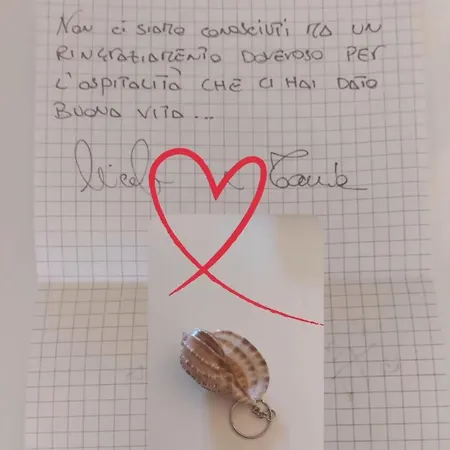 Non ci siamo conosciuti ma un
RINGRAZIAMENTO DOVEROSO PER
L'OSPITALITÀ CHE CI HAI DATO
BUONA VITA...